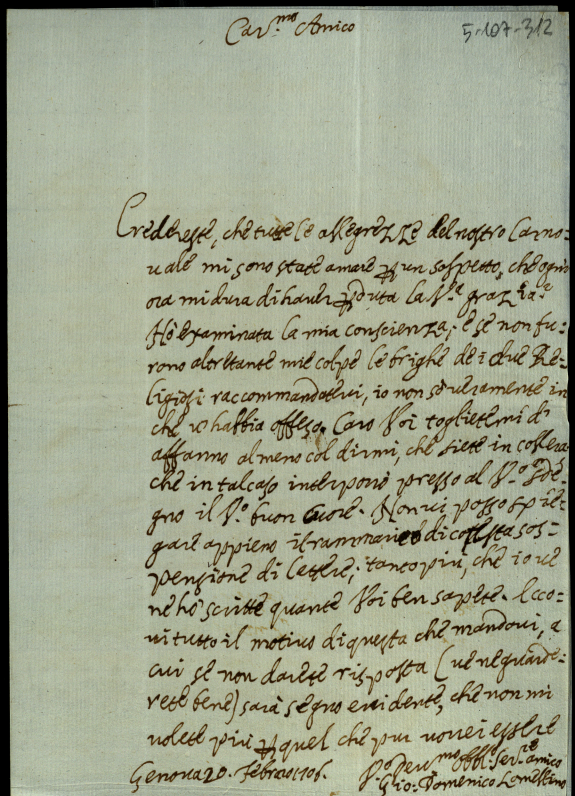 Car.mo Amico
5-107-312
Crederete, che tutte le allegrezze del nostro Carno=
uale mi sono state amare p un sospetto, che ogni
ora mi dura di hauer pduta la V.a grazia.
Hò examinata la mia conscienza; e se non fu=
rono altretante mie colpe le brighe de i due Re=
ligiosi raccommandateui, io non sò ueramente in
che u' habbia offeso. Caro Voi toglietemi d'
affanno almeno col dirmi, che siete in collera
che in tal caso interporrò presso al V.o sde=
gno il V.o buon Cuore. Non ui posso spie=
gare appieno il rammarico di cotesta sos=
pensione di lettere; tanto più, che io ue
ne hò scritte quante Voi ben sapete. Ecco=
ui tutto il motiuo di questa che mandoui, a
cui se non darete risposta (ue ne guarde=
rete bene) sarà segno euidente, che non mi
uolete più p quel che pur uorrei essere
Genoua 20. Febraro 1706.
V.o Deu.mo Obbl.o Ser.re amico
Gio: Domenico Lomellino